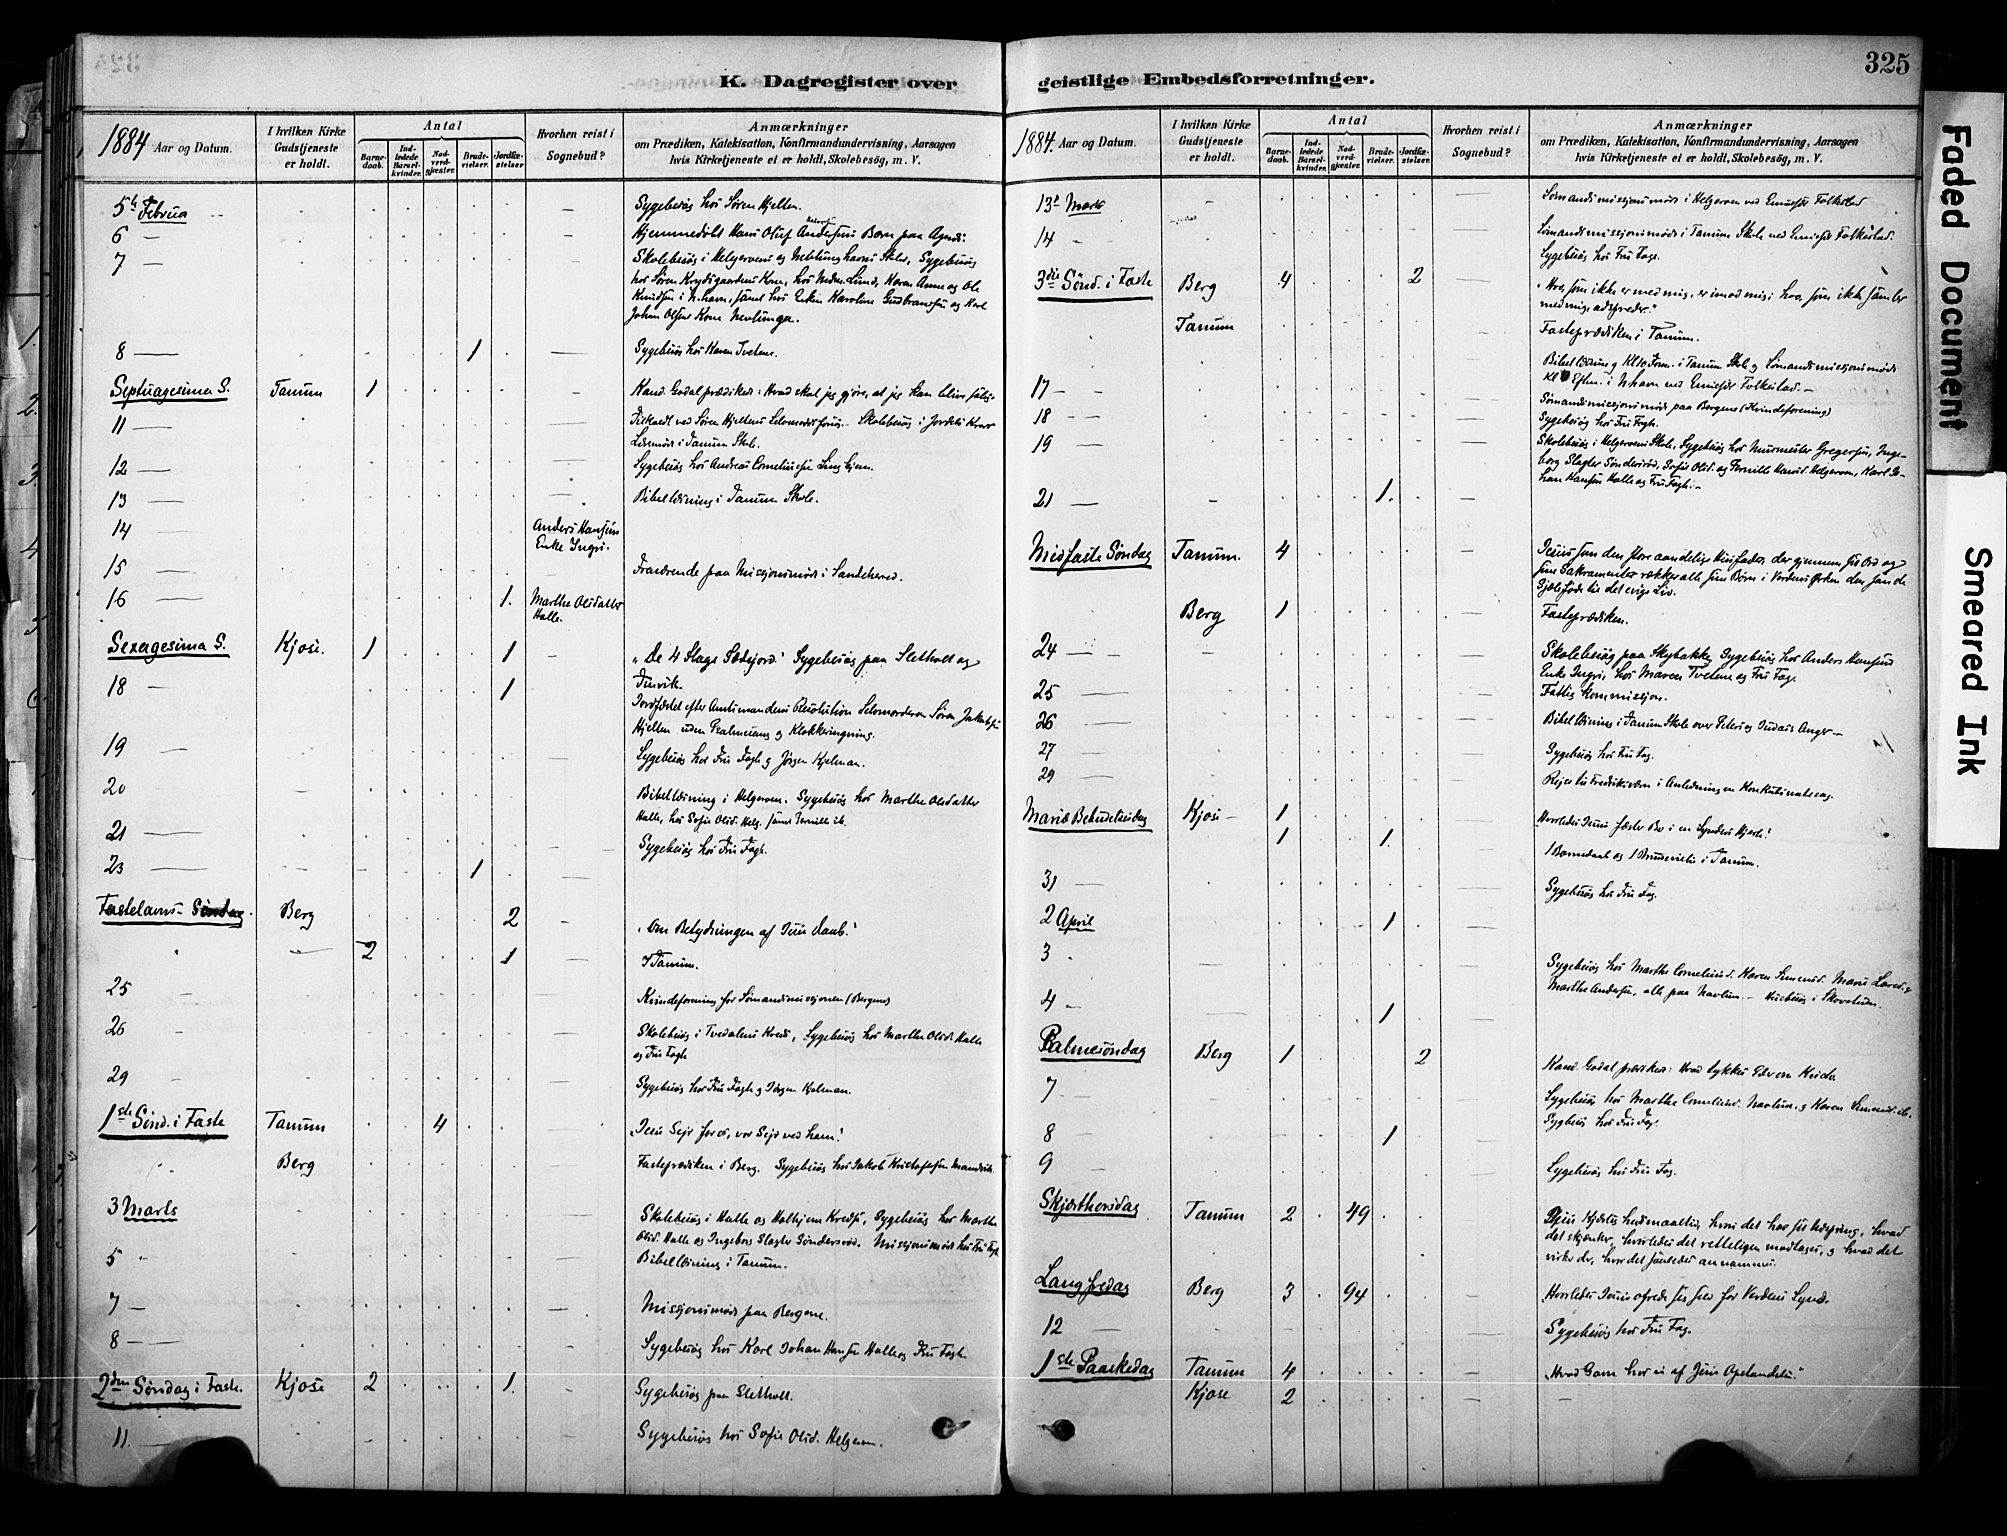 325
K. Dagregister over
geistlige Embedsforretninger.
1884 Aar og Datum.
I hvilken Kirke Gudstjeneste er holdt.
Antal
Barnedaab.
Indledede Barselkvinder.
Nadverdgjæster.
Brudevielser.
Jordfæstelser.
Hvorhen reist i Sognebud?
Anmærkninger
om Prædiken, Katekisation, Konfirmandundervisning, Aarsagen
hvis Kirketjeneste ei er holdt, Skolebesøg, m. V.
5te Februa Sygebesøg hos Søren Hjelten.
6 — Hjemmedøbt Hans Oluf Andersens Barn paa
7 — Skolebesøg i Helgeroens og Nevlunghavns Skoler, Sygebesøg
hos Søren Kone, hos Lund, Karen Anne og Ole
Knudsen i N.havn, samt hos Enken Karoline Gudbransen og Karl
Johan Olsens Kone Nevlungh.
8 — 1 Sygebesøg hos Karen Tvetene.
Septuagesima S. Tanum 1 Kand. Godal prædiked: Hvad skal jeg gjøre, at jeg kan blive salig.
11 — ved Søren Hjeltens Skolebesøg i
i Tanum Skole.
12 — Sygebesøg hos Andreas Corneliusen
13 — Bibellæsning i Tanum Skole.
14 — Anders Hansens
Enke Ingri.
15 — Fraværende paa Missionsmøde i Sandeherred.
16 — 1. Marthe Olsdatter
Halle.
Sexagesima S. Kjose. 1 1 „De 4 Slags Sædejord." Sygebesøg paa Sletholt og
18 — 1
Jordfæstet efter Amtmandens Resolution Selvmorderen Søren Jakobsen
Hjelten uden Psalmesang og Klokkeringning.
19 — Sygebesøg hos Fru Fagh og Jørgen Kjelman.
20 Bibellæsning i Helgeroen. Sygebesøg hos Marthe Olsdatter
Halle, hos Sofie Olsd. Helg. samt Pernille ib.
21 — Sygebesøg hos Fru Fagh.
23 — 1
Fastelavns-Søndag. Berg 2 „Om Betydningen af Jesu Daab."
2 1 I Tanum.
25 Kvindeforening for Sømandsmissionen (Bergene)
26 Skolebesøg i Tvedalens Kreds, Sygebesøg hos Marthe Olsd. Halle
og Fru Fagh
29 Sygebesøg hos Fru Fagh og Jörgen Kjelman.
1ste Sønd. i Faste Tanum 4 „Jesu Sejr for os, vor Sejr ved ham."
Berg Fasteprædiken i Berg. Sygebesøg hos Jakob Kristofersen
3 Marts Skolebesøg i Halle og Holhjem Kredse, Sygebesøg hos Marthe
Olsd. Halle og Ingeborg Slagter Søndersrød. Missionsmøde hos Fru Fagh
5 Bibellæsning i Tanum.
7 — Missionsmøde paa Bergene.
8 — Sygebesøg hos Karl Johan Hansen Halle og Fru Fagh
2den Søndag i Faste. Kjose 2 1. Sygebesøg paa Sletholt.
11. Sygebesøg hos Sofie Olsd. Helgeroen.
1884 Aar og Datum.
I hvilken Kirke Gudstjeneste er holdt.
Antal
Barnedaab.
Indledede Barselkvinder.
Nadverdgjæster.
Brudevielser.
Jordfæstelser.
Hvorhen reist i Sognebud?
Anmærkninger
om Prædiken, Katekisation, Konfirmandundervisning, Aarsagen
hvis Kirketjeneste ei er holdt, Skolebesøg, m. V.
13 Marts Sømandsmissionsmøde i Helgeroen ved Emissær Folkestad
14 - Sømandsmissionsmøde i Tanum Skole ved Emissær Folkestad.
Sygebesøg hos Fru Fagh.
3die Sønd. i Faste Berg 4 2 „Hvo, som ikke er med mig, er imod mig; hvo, som ikke samler
med mig, adspreder."
Tanum Fasteprædiken i Tanum.
17 — Bibellæsning Kl 10 Form. i Tanum Skole og Sømandsmissionsmøde
Kl Efterm. i N.havn ved Emissær Folkestad. —
18 — Sømandsmissionsmøde paa Bergene (Kvindeforening)
Sygebesøg hos Fru Fagh.
19 — Skolebesøg i Helgeroens Skole, Sygebesøg hos Murmester Gregersen, Inge-
borg Slagter Søndersrød, Sofie Olsd. og Pernille Hansd. Helgeroen, Karl Jo-
han Hansen Halle og Fru Fagh. —
21 — 1.
Midfaste Søndag Tanum. 4 Jesus som den store aandelige Husfader, der gjennem sit Ord og
sine Sakramenter rækker alle sine Børn i Verdens Ørken den sande
Sjæleføde til det evige Liv.
Berg 1 Fasteprædiken.
24 — Skolebesøg paa Skybakke, Sygebesøg hos Anders Hansens
Enke Ingri, hos Maren Tvetene og Fru Fag.
25 — Fattigkommission.
26 — Bibellæsning i Tanum Skole over Peters og Judas's Anger —
27 — Sygebesøg hos Fru Fag.
29 — Rejse til Fredriksværn i Anledning en
Mariæ Bebudelsesdag Kjose — 1 Hvorledes Jesus fæster Bo i en Synders Hjerte!
1 1. 1 Barnedaab og 1 Brudevielse i Tanum.
31 — Sygebesøg hos Fru Fag.
2 April 1
3 Sygebesøg hos Marthe Corneliusd. Karen Simonsd. Maren
Marthe Andersen, alle paa Navlun. — Husbesøg i
4 — 1
Palmesøndag Berg 1 2 Kand. Godal prædiked: Hvad
7 — Sygebesøg hos Marthe Corneliusd. Navlun. og Karen Simonsd. ib.
Sygebesøg hos Fru Fag.
8 — 1
9 Sygebesøg hos Fru Fag.
Skjærthorsdag Tanum 2 49 Jesu Kjærligheds maaltid, hvori det har sit Udspring, hvad
det skjænker, hvorledes det retteligen modtages, og hvad det
virker der, hvor det saaledes annammes.
Langfredag Berg 3 94 Hvorledes Jesus ofrede sig selv for Verdens Synd.
12 — Sygebesøg hos Fru Fag.
1ste Paaskedag Tanum 4 „Hvad Gavn har vi af Jesu Opstandelse."
Kjose 2 —
Faded Document
Smeared Ink